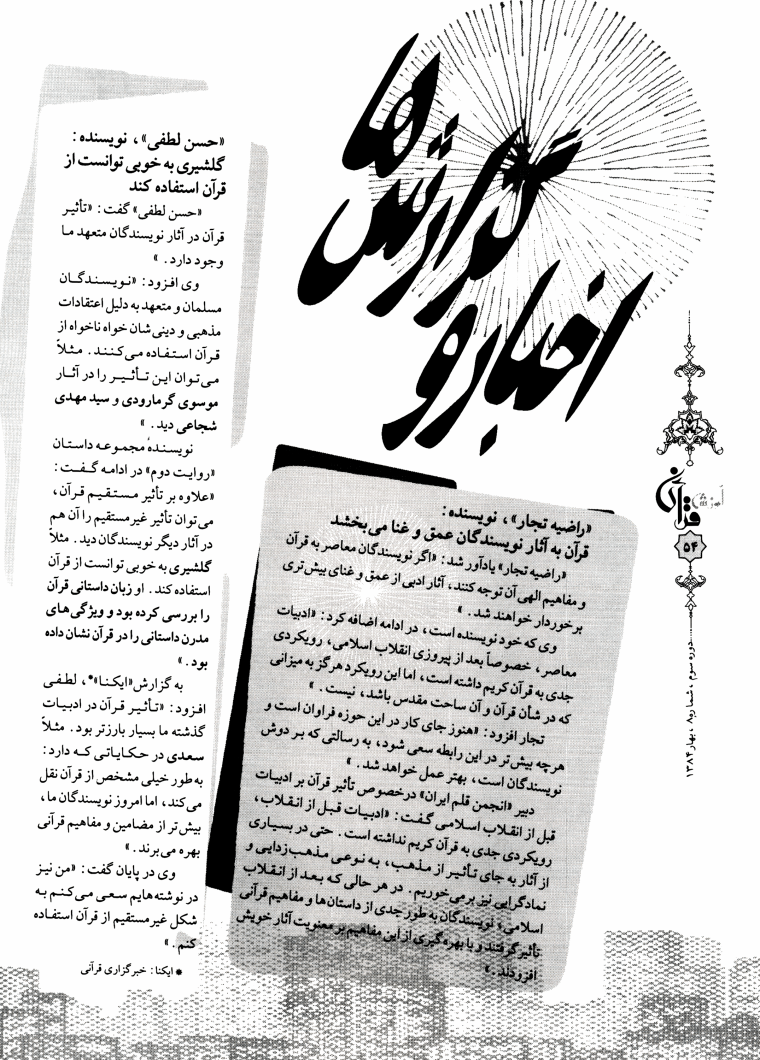 اخبار و
گزارش‌ها
«راضیه تجار»، نویسنده:
قرآن به آثار نویسندگان عمق و غنا می‌بخشد
«راضیه تجار» یادآور شد: «اگر نویسندگان معاصر به قرآن
و مفاهیم الهی آن توجه کنند، آثار ادبی از عمق و غنای بیش‌تری
برخوردار خواهند شد.»
وی که خود نویسنده است، در ادامه اضافه کرد: «ادبیات
معاصر، خصوصاً بعد از پیروزی انقلاب اسلامی، رویکردی
جدی به قرآن کریم داشته است، اما این رویکرد هرگز به میزانی
که در شأن قرآن و آن ساحت مقدس باشد، نیست.»
تجار افزود: «هنوز جای کار در این حوزه فراوان است و
هرچه بیش‌تر در این رابطه سعی شود، به رسالتی که بر دوش
نویسندگان است، بهتر عمل خواهد شد.»
دبیر «انجمن قلم ایران» درخصوص تأثیر قرآن بر ادبیات
قبل از انقلاب اسلامی گفت: «ادبیات قبل از انقلاب،
رویکردی جدی به قرآن کریم نداشته است. حتی در بسیاری
از آثار به جای تأثیر از مذهب، به نوعی مذهب‌زدایی و
نمادگرایی نیز برمی‌خوریم. در هر حالی که بعد از انقلاب
اسلامی، نویسندگان به طور جدی از داستان‌ها و مفاهیم قرآنی
تأثیر گرفتند و با بهره‌گیری از این مفاهیم بر معنویت آثار خویش
افزودند.»
«حسن لطفی»، نویسنده:
گلشیری به خوبی توانست از
قرآن استفاده کند
«حسن لطفی» گفت: «تأثیر
قرآن در آثار نویسندگان متعهد ما
وجود دارد.»
وی افزود: «نویسندگان
مسلمان و متعهد به دلیل اعتقادات
مذهبی و دینی‌شان خواه ناخواه از
قرآن استفاده می‌کنند. مثلاً
می‌توان این تأثیر را در آثار
موسوی گرمارودی و سید مهدی
شجاعی دید.»
نویسندهٔ مجموعه داستان
«روایت دوم» در ادامه گفت:
«علاوه بر تأثیر مستقیم قرآن،
می‌توان تأثیر غیرمستقیم را آن هم
در آثار دیگر نویسندگان دید. مثلاً
گلشیری به خوبی توانست از قرآن
استفاده کند. او زبان داستانی قرآن
را بررسی کرده بود و ویژگی‌های
مدرن داستانی را در قرآن نشان داده
بود.»
به گزارش «ایکنا»*، لطفی
افزود: «تأثیر قرآن در ادبیات
گذشته ما بسیار بارزتر بود. مثلاً
سعدی در حکایاتی که دارد:
به‌طور خیلی مشخص از قرآن نقل
می‌کند، اما امروز نویسندگان ما،
بیش‌تر از مضامین و مفاهیم قرآنی
بهره می‌برند.»
وی در پایان گفت: «من نیز
در نوشته‌هایم سعی می‌کنم به
شکل غیرمستقیم از قرآن استفاده
کنم.»
* ایکنا: خبرگزاری قرآنی
آموزش
قرآن
۵۴
دوره سوم، شماره ۸، بهار ۱۳۸۴